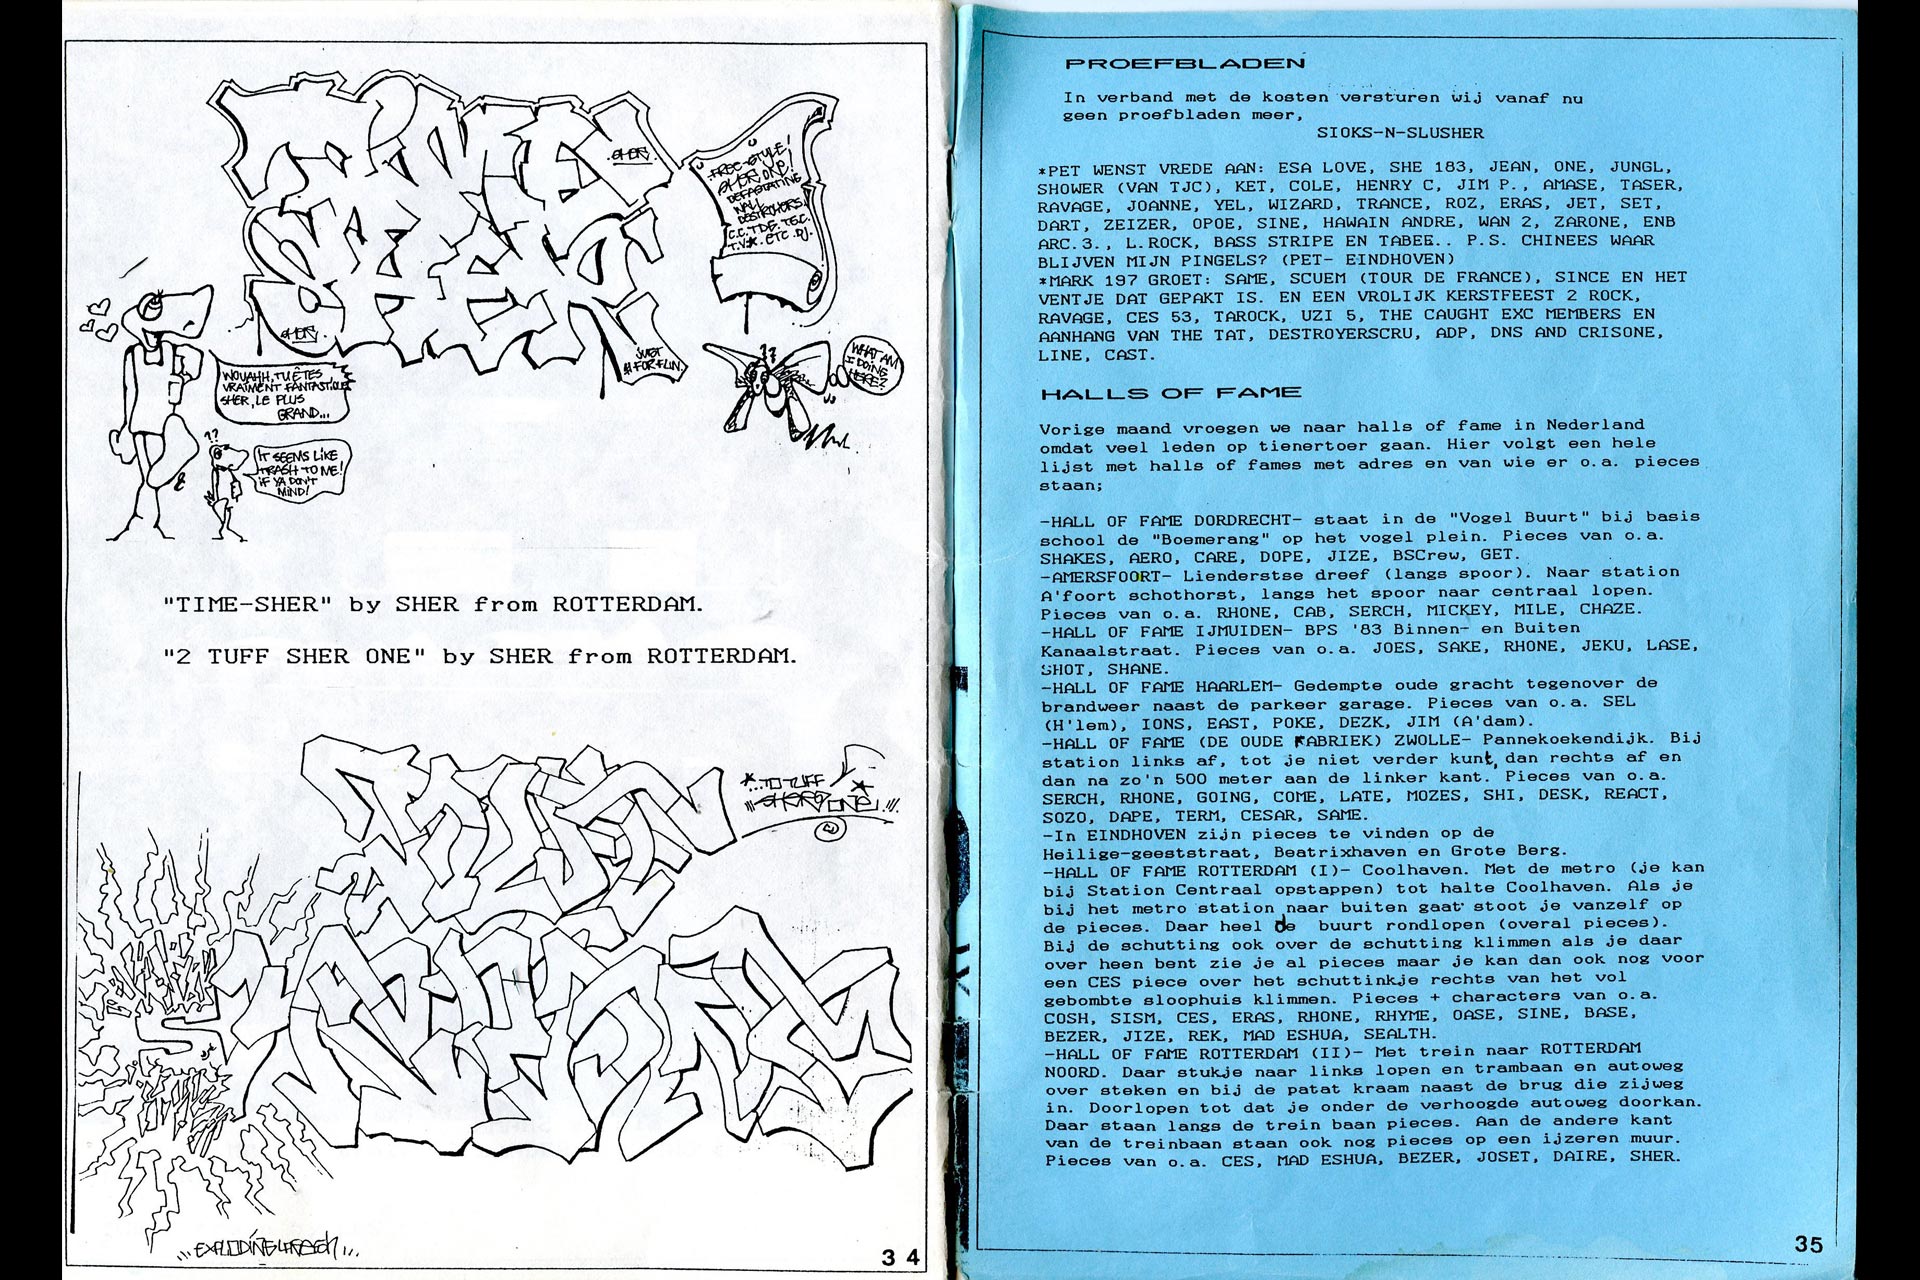 TIME
SHER
SHER
SHER
JUST
4 FOR FUN.
FREE-STYLE!
SHER ONE!
DEFASTATING
WALL
DESTROYERS.
C.C. T.D.S. T.S.C.
T.V.★. ETC. DJ.
WOUAHH, TU ÊTES
VRAIMENT FANTASTIQUE
SHER, LE PLUS
GRAND...
??
IT SEEMS LIKE
TRASH TO ME!
IF YA DON'T
MIND!
??
WHAT AM
I DOING
HERE?
"TIME-SHER" by SHER from ROTTERDAM.
"2 TUFF SHER ONE" by SHER from ROTTERDAM.
★...TO TUFF
SHER ONE!..!!!.
34
PROEFBLADEN
In verband met de kosten versturen wij vanaf nu
geen proefbladen meer,
SIOKS-N-SLUSHER
*PET WENST VREDE AAN: ESA LOVE, SHE 183, JEAN, ONE, JUNGL,
SHOWER (VAN TJC), KET, COLE, HENRY C, JIM P., AMASE, TASER,
RAVAGE, JOANNE, YEL, WIZARD, TRANCE, ROZ, ERAS, JET, SET,
DART, ZEIZER, OPOE, SINE, HAWAIN ANDRE, WAN 2, ZARONE, ENB
ARC.3., L.ROCK, BASS STRIPE EN TABEE.. P.S. CHINEES WAAR
BLIJVEN MIJN PINGELS? (PET- EINDHOVEN)
*MARK 197 GROET: SAME, SCUEM (TOUR DE FRANCE), SINCE EN HET
VENTJE DAT GEPAKT IS. EN EEN VROLIJK KERSTFEEST 2 ROCK,
RAVAGE, CES 53, TAROCK, UZI 5, THE CAUGHT EXC MEMBERS EN
AANHANG VAN THE TAT, DESTROYERSCRU, ADP, DNS AND CRISONE,
LINE, CAST.
HALLS OF FAME
Vorige maand vroegen we naar halls of fame in Nederland
omdat veel leden op tienertoer gaan. Hier volgt een hele
lijst met halls of fames met adres en van wie er o.a. pieces
staan;
-HALL OF FAME DORDRECHT- staat in de "Vogel Buurt" bij basis
school de "Boemerang" op het vogel plein. Pieces van o.a.
SHAKES, AERO, CARE, DOPE, JIZE, BSCrew, GET.
-AMERSFOORT- Lienderstse dreef (langs spoor). Naar station
A'foort schothorst, langs het spoor naar centraal lopen.
Pieces van o.a. RHONE, CAB, SERCH, MICKEY, MILE, CHAZE.
-HALL OF FAME IJMUIDEN- BPS '83 Binnen- en Buiten
Kanaalstraat. Pieces van o.a. JOES, SAKE, RHONE, JEKU, LASE,
SHOT, SHANE.
-HALL OF FAME HAARLEM- Gedempte oude gracht tegenover de
brandweer naast de parkeer garage. Pieces van o.a. SEL
(H'lem), IONS, EAST, POKE, DEZK, JIM (A'dam).
-HALL OF FAME (DE OUDE FABRIEK) ZWOLLE- Pannekoekendijk. Bij
station links af, tot je niet verder kunt, dan rechts af en
dan na zo'n 500 meter aan de linker kant. Pieces van o.a.
SERCH, RHONE, GOING, COME, LATE, MOZES, SHI, DESK, REACT,
SOZO, DAPE, TERM, CESAR, SAME.
-In EINDHOVEN zijn pieces te vinden op de
Heilige-geeststraat, Beatrixhaven en Grote Berg.
-HALL OF FAME ROTTERDAM (I)- Coolhaven. Met de metro (je kan
bij Station Centraal opstappen) tot halte Coolhaven. Als je
bij het metro station naar buiten gaat stoot je vanzelf op
de pieces. Daar heel de buurt rondlopen (overal pieces).
Bij de schutting ook over de schutting klimmen als je daar
over heen bent zie je al pieces maar je kan dan ook nog voor
een CES piece over het schuttinkje rechts van het vol
gebombte sloophuis klimmen. Pieces + characters van o.a.
COSH, SISM, CES, ERAS, RHONE, RHYME, OASE, SINE, BASE,
BEZER, JIZE, REK, MAD ESHUA, SEALTH.
-HALL OF FAME ROTTERDAM (II)- Met trein naar ROTTERDAM
NOORD. Daar stukje naar links lopen en trambaan en autoweg
over steken en bij de patat kraam naast de brug die zijweg
in. Doorlopen tot dat je onder de verhoogde autoweg doorkan.
Daar staan langs de trein baan pieces. Aan de andere kant
van de treinbaan staan ook nog pieces op een ijzeren muur.
Pieces van o.a. CES, MAD ESHUA, BEZER, JOSET, DAIRE, SHER.
35